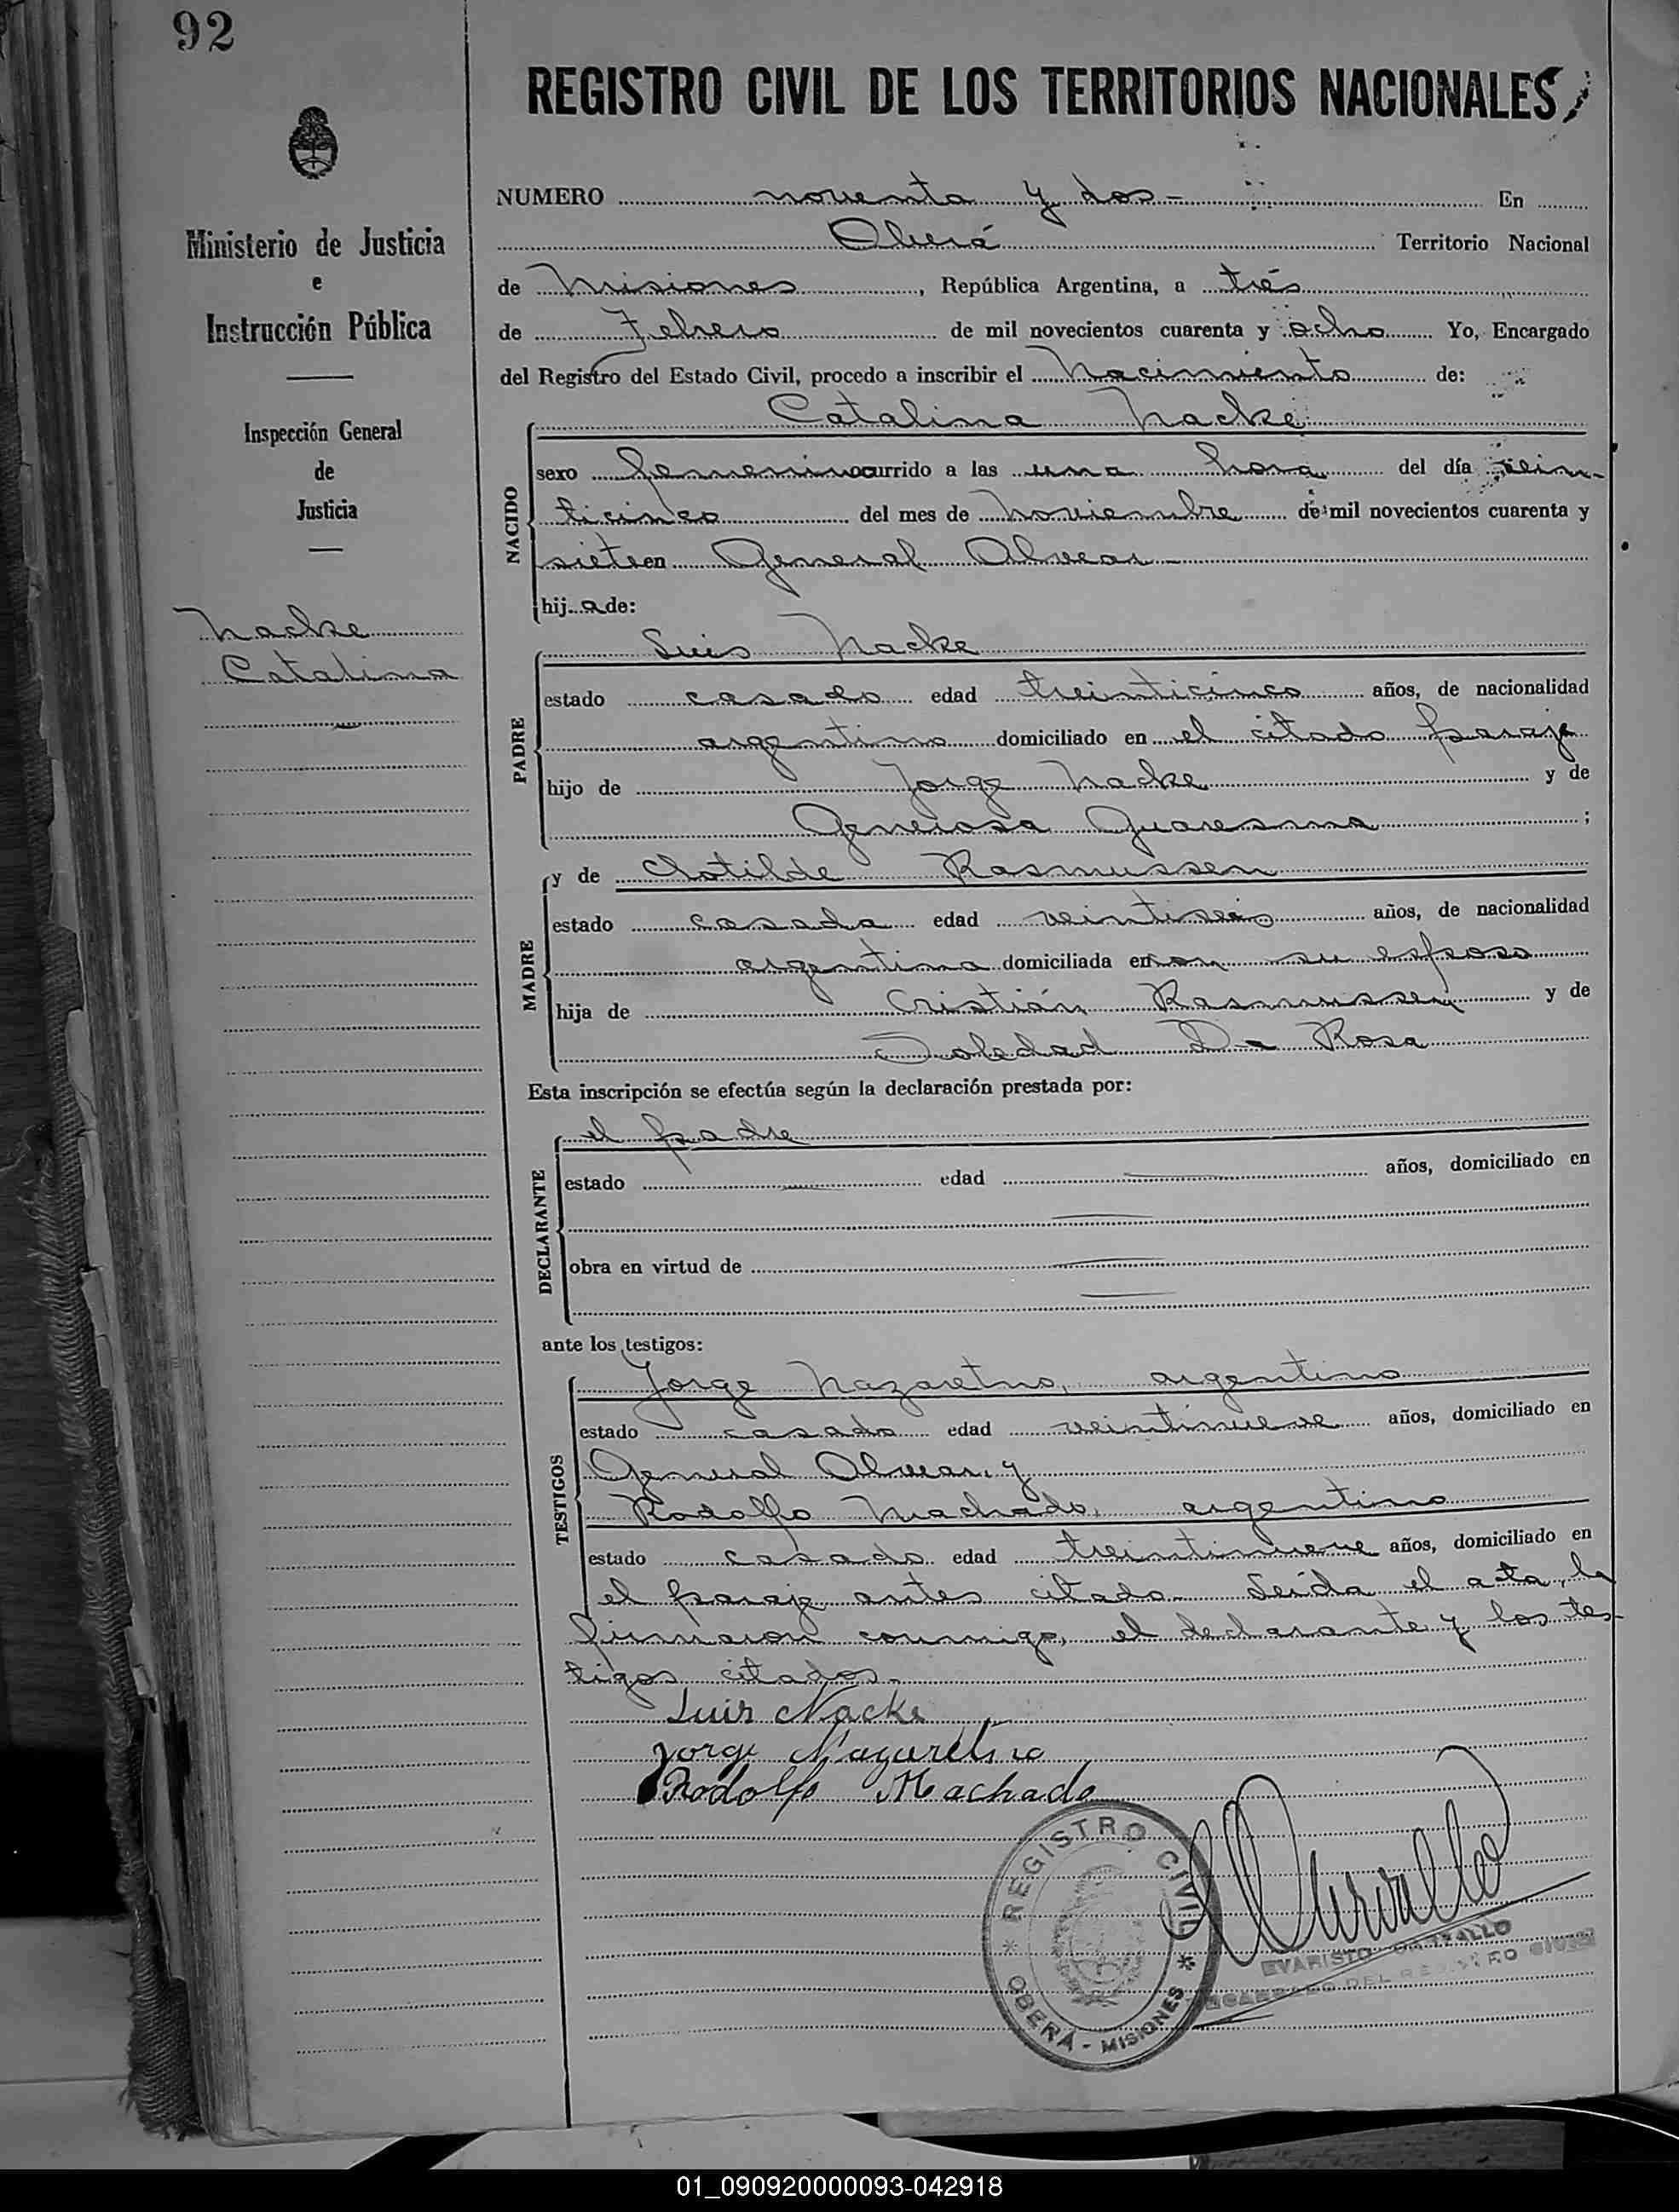 92
REGISTRO CIVIL DE LOS TERRITORIOS NACIONALES
Ministerio de Justicia
e
Instrucción Pública
Inspección General
de
Justicia
Nacke
Catalina
NUMERO noventa y dos - En
Oberá Territorio Nacional
de Misiones, República Argentina, a tres
de Febrero de mil novecientos cuarenta y ocho Yo, Encargado
del Registro del Estado Civil, procedo a inscribir el Nacimiento de:
Catalina Nacke
NACIDO
sexo femenino ocurrido a las una hora del día vein-
ticinco del mes de Noviembre de mil novecientos cuarenta y
siete en General Alvear -
hij a de:
PADRE
Luis Nacke
estado casado edad treinticinco años, de nacionalidad
argentino domiciliado en el citado paraje
hijo de Jorge Nacke y de
Generosa Quaresma ;
MADRE
y de Clotilde Rasmussen
estado casada edad veintiseis años, de nacionalidad
argentina domiciliada en con su esposo
hija de Cristián Rasmussen y de
Soledad Da Rosa
Esta inscripción se efectúa según la declaración prestada por:
DECLARANTE
el padre
estado edad años, domiciliado en
obra en virtud de
ante los testigos:
TESTIGOS
Jorge Nazaretno, argentino
estado casado edad veintinueve años, domiciliado en
General Alvear, y
Rodolfo Machado, argentino
estado casado edad treintinueve años, domiciliado en
el paraje antes citado. Leída el acta, la
firmaron conmigo, el declarante y los tes-
tigos citados.-
Luis Nacke
Jorge
Rodolfo Machado
REGISTRO CIVIL
OBERÁ - MISIONES
EVARISTO
DEL REGISTRO CIVIL
01_090920000093-042918